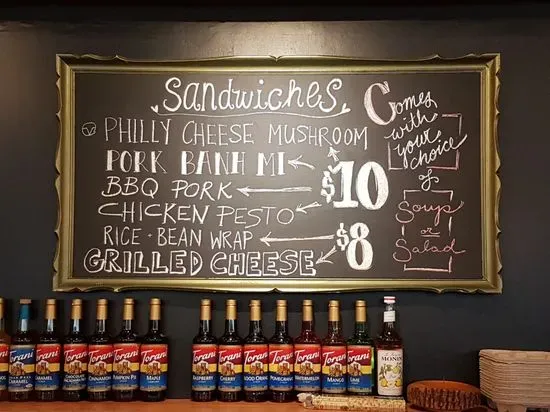 Sandwiches
PHILLY CHEESE MUSHROOM
PORK BANH MI
BBQ PORK
CHICKEN PESTO
$10
RICE + BEAN WRAP
GRILLED CHEESE
$8
Comes
with
your
choice
of
Soup
or
Salad
TORANI
CARAMEL
TORANI
CARAMEL
TORANI
TORANI
CINNAMON
TORANI
PUMPKIN PIE
TORANI
MAPLE
TORANI
RASPBERRY
TORANI
CHERRY
TORANI
BLOOD ORANGE
TORANI
POMEGRANATE
TORANI
WATERMELON
TORANI
MANGO
TORANI
LIME
MONIN